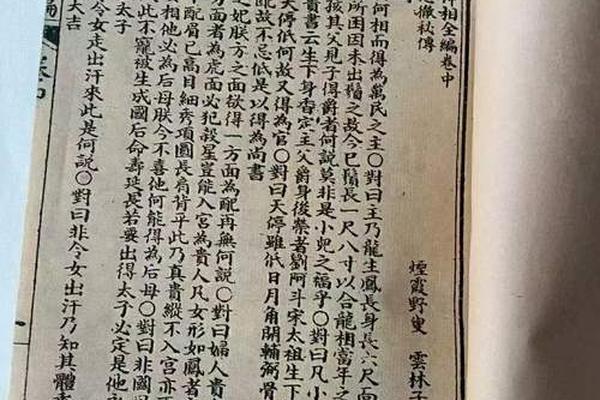 相全編卷中
忠徹秘傳
煙霞野叟 雲林子
何相而得為萬民之主○對曰主乃龍生鳳長身長六尺面
所困因未出鬚之故今已鬚長一尺八寸以合龍相當年之
孩其父見子得爵者何說莫非是小兒之福乎○對曰凡小
貴書云生下身香定主父爵身後榮者劉阿斗宋太祖生下
天停低何故又得為官○對曰天停雖低日月角開輔弼骨
配故不忘低是以得為尚書
之妃朕方之面欲得一方面為配再無何說○對曰婦人貴
方面者為虎面必犯殺星豈能入宮為貴人凡女形如鳳者
配眉已高目細秀項圓長肩背平此乃真貴縱不入宮亦
相他必為后母朕今不喜他何能得為后母○對曰非國
此不寵被生成國后命壽延長若要出得太子必定是他
太子
令女走出汗來此是何說○對曰非令女出汗乃知其體香
大吉